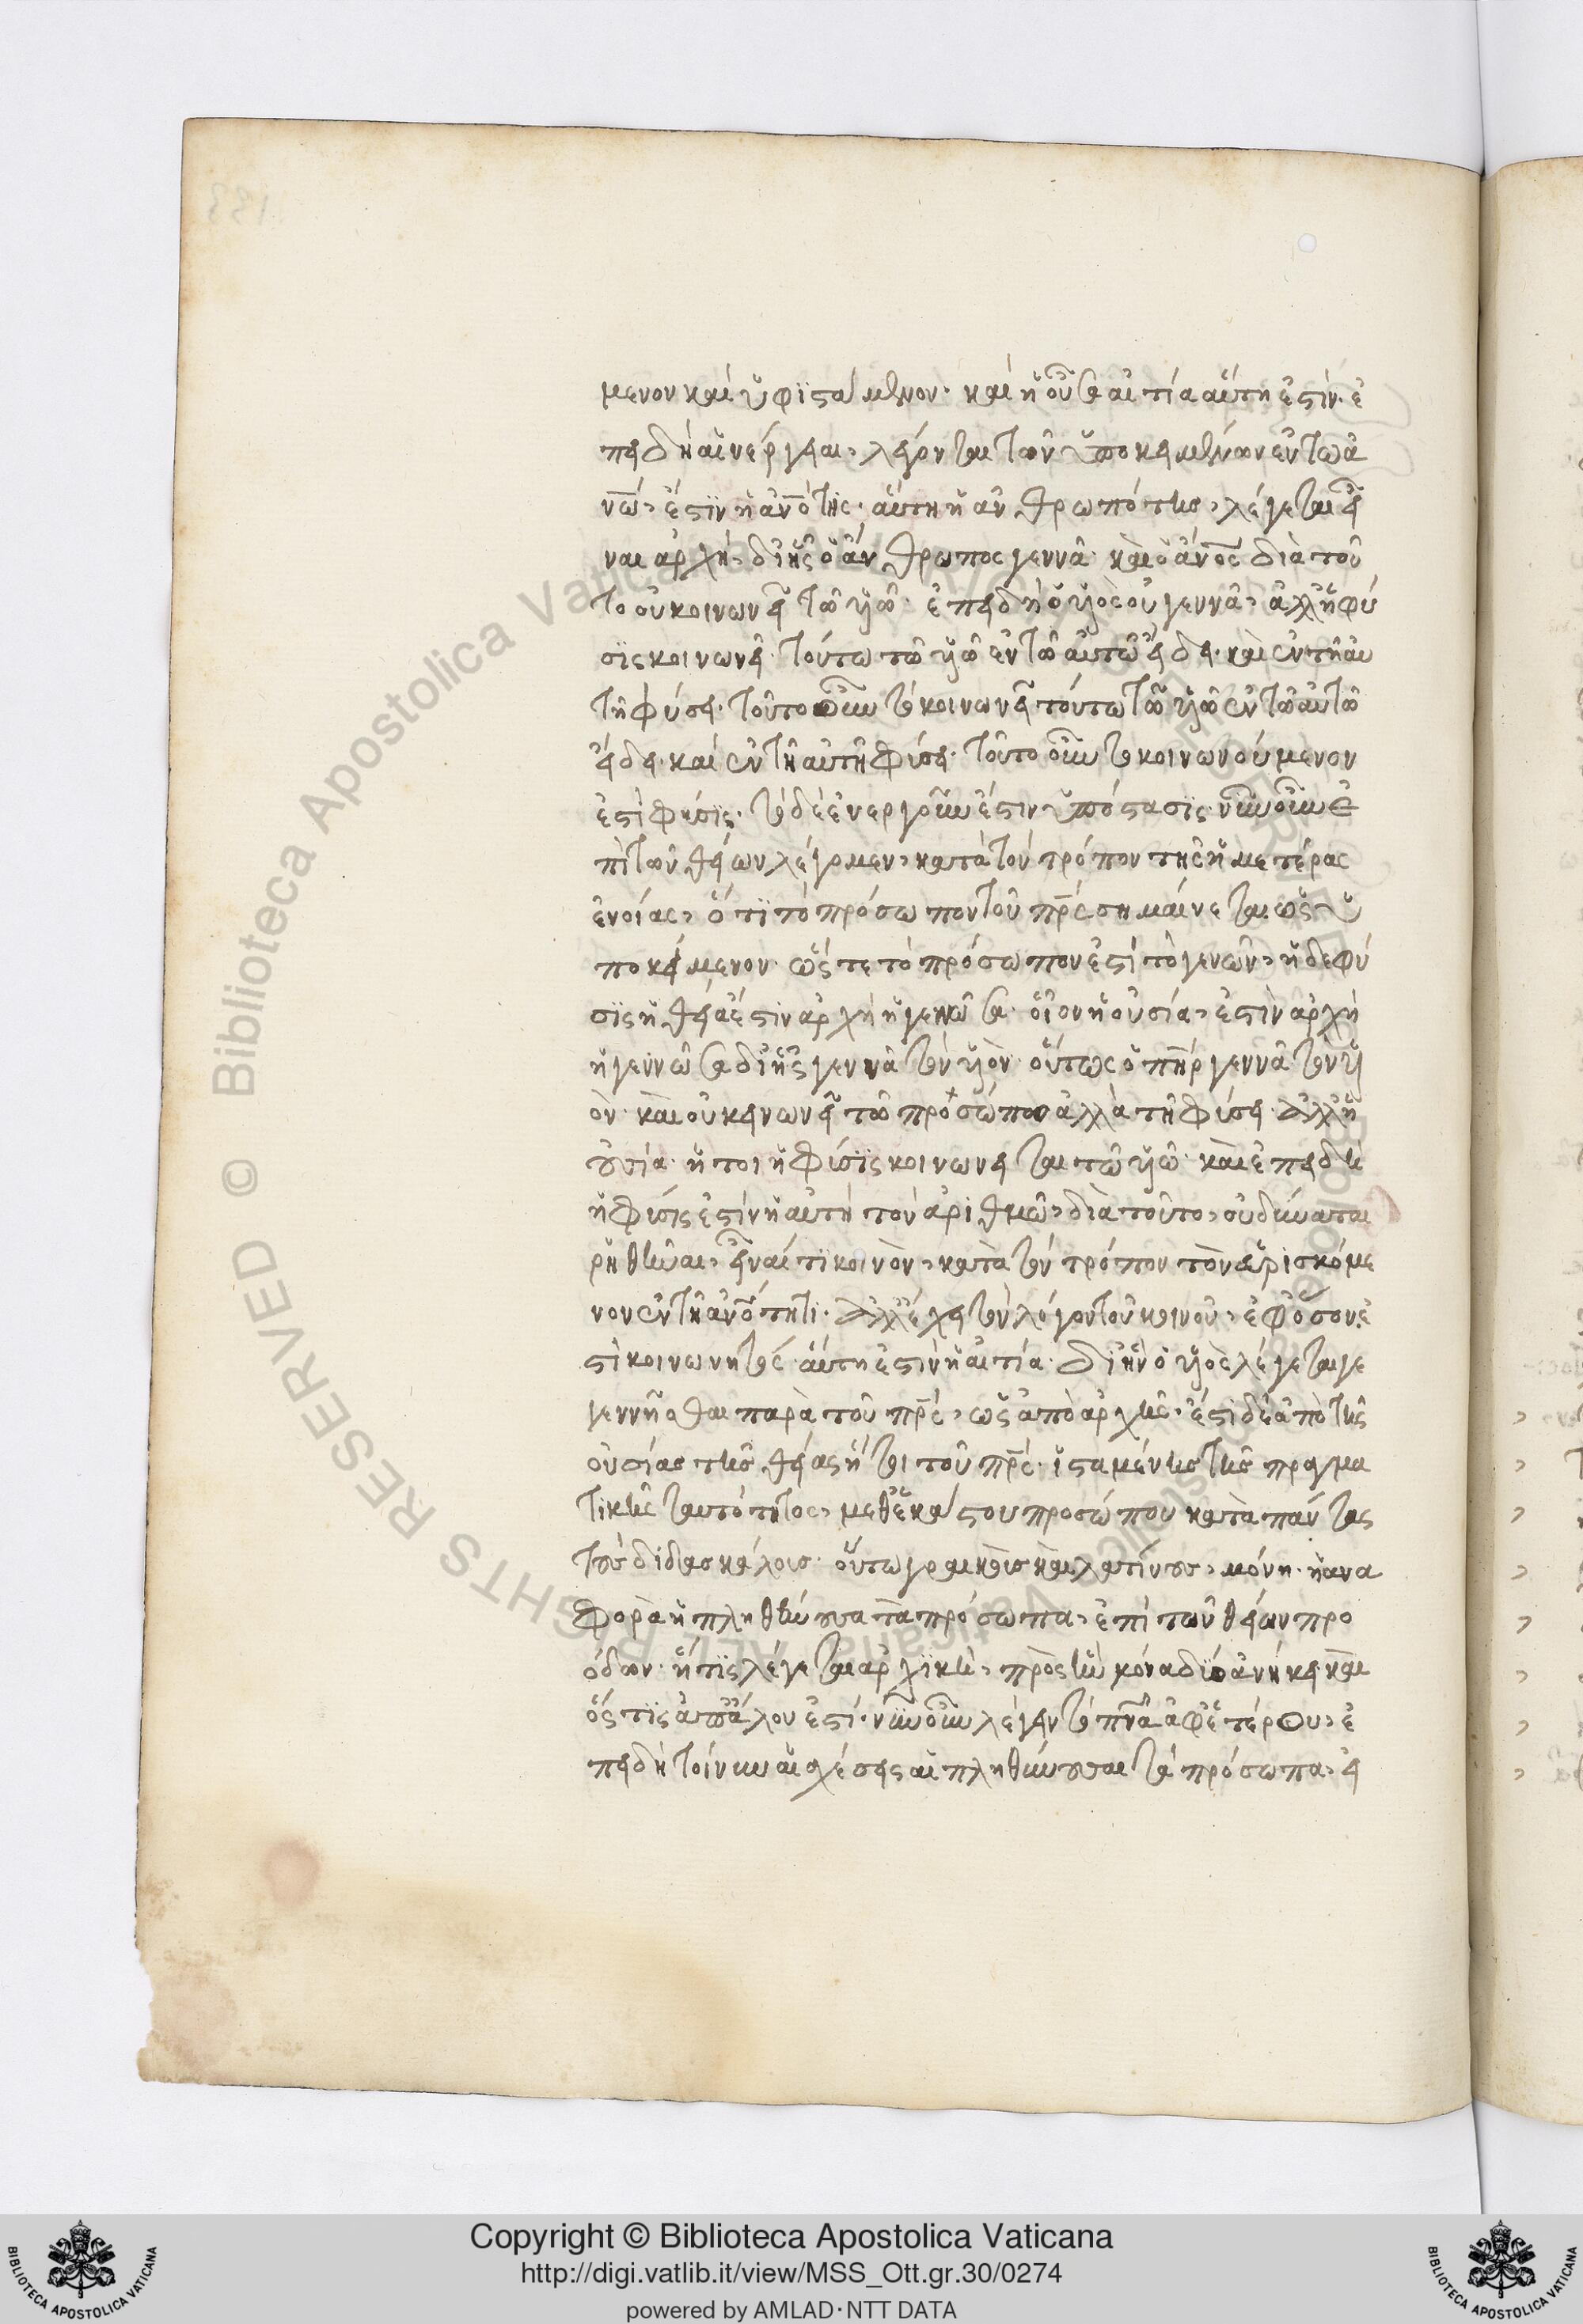 μενον καὶ ὑφϊστάμενον· καὶ ἡ οὖσα αἰτία αὕτη ἐστίν· ἐ
πειδὴ αἱ ἐνέργειαι, λέγονται τῶν ὑποκειμένων ἐν τῷ ἀ
νω̅, ἔστϊν ἡ αν̅ότης· αὕτη ἡ ἀνθρωπότης, λέγεται εἶ
ναι ἀρχὴ, δι ἧς ὁ ἄνθρωπος γεννᾶ· καὶ ὁ ἄνο̅ς διὰ τοῦ
το οὐ κοινωνεῖ τῶ ὑιῶ· ἐπειδὴ ὁ ὑιὸς οὐ γεννᾶ, ἀλλ ἡ φύ
σϊς κοινωνεῖ· τούτω τῶ ὑιῶ ἐν τῶ αὐτῶ εἴδει· καὶ ἐν τῆ αὐ
τῆ φύσει· τοῦτο οὖν τὸ κοινωνεῖ τούτω τῶ ὑιῶ ἐν τῶ αὐτῶ
εἴδει· καὶ ἐν τῆ αὐτῆ φύσει· τοῦτο οὖν τὸ κοινωνούμενον
ἐστὶ φύσϊς· τὸ δὲ ἐνεργοῦν ἐστιν ὑπόστασϊς· νῦν οὖν ἐ
πὶ τῶν θείων λέγομεν, κατὰ τὸν τρόπον τῆς ἡμετέρας
ἐνοίας, ὅτϊ τὸ πρόσωπον τοῦ πρ̅ς σημαίνεται ὡς ὑ
ποκείμενον· ὥστε τὸ πρόσωπον ἐστὶ τὸ γενῶν, ἡ δε φύ
σϊς ἡ θεία ἐστιν ἀρχὴ ἡ γεννῶσα· οἷον ἡ οὐσία, ἐστὶν ἀρχὴ
ἡ γεννῶσα δι ἧς γεννᾶ τὸν ὑιὸν· οὕτως ὁ πη̅ρ γεννᾶ τὸν ὑι
ὸν· καὶ οὐ κεινωνεῖ τῶ προσώπου ἀλλὰ τῆ φύσει· ἀλλ ἡ
οὐσία· ἤτοι ἡ φύσϊς κοινωνεῖται τῶ ὑιῶ· καὶ ἐπειδὴ
ἡ φύσϊς ἐστὶν ἡ αὐτὴ τὸν ἀριθμῶ, διὰ τοῦτο, οὐ δύναται
ρἡθῆναι, εἶναί τι κοινὸν, κατὰ τὸν τρόπον τὸν εὑρισκόμε
νον ἐν τῆ ανο̅τητι· ἀλλ ἔχει τὸν λόγον τοῦ κοινοῦ, ἐφ ὅσον ἐ
στὶ κοινωνητὸς· αὕτη ἐστὶν ἡ αἰτία· δι ἣν ὁ ὑιὸς λέγεται γε
γεννῆσθαι παρὰ τοῦ πρ̅ς, ὡς ἀπὸ ἀρχῆς, ἔστι δὲ ἀπὸ τῆς
οὐσίας τῆς θείας ἤτοι τοῦ πρ̅ς· ἱσταμένης τῆς πραγμα
τικῆς ταυτότητος, μεθ ἑκάστου προσώπου κατὰ πάντας
τοὺς διδασκάλοις· οὕτω γραικοὺς καὶ λατίνους, μόνη· ἡ ἀνα
φορὰ ἡ πληθύνουσα τὰ πρόσωπα, ἐπὶ τῶν θείων προ
όδων· ἥτϊς λέγεται ἀρχϊκὴ, πρὸς ἣν μόνα διὸ ἀνήκει· καὶ
ὅστϊς ἀπ ἄλλου ἐστί· νῦν οὖν λέγειν τὸ πνα̅ ἀφ ἑτέρου, ἐ
πειδὴ τοίνυν αἱ σχέσεις αἱ πληθύνουσαι τὰ πρόσωπα, εἰ
Copyright © Biblioteca Apostolica Vaticana
http://digi.vatlib.it/view/MSS_Ott.gr.30/0274
powered by AMLAD·NTT DATA